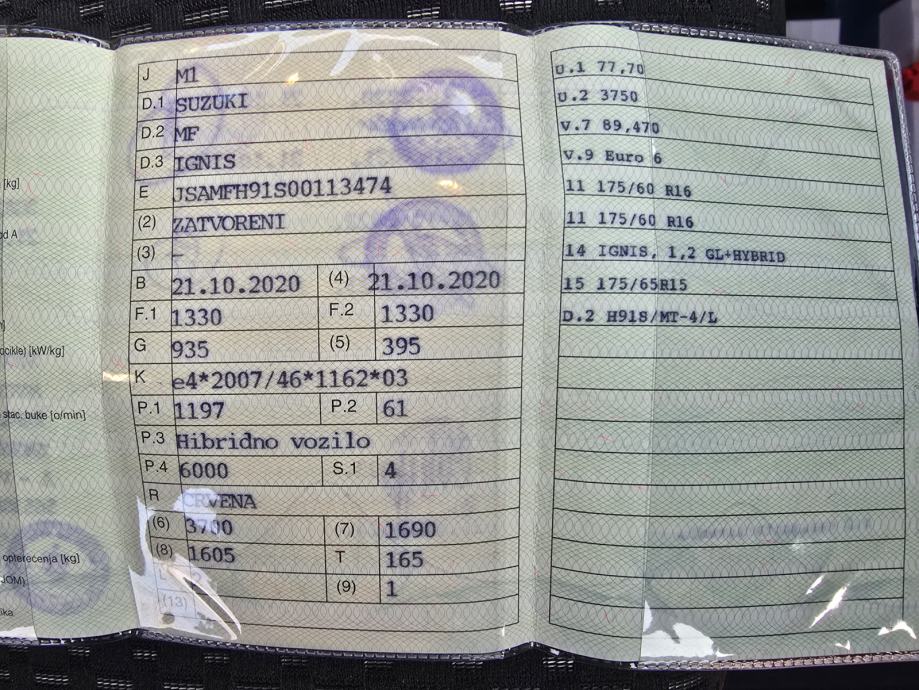 [kg]
od A
ocikle) [kW/kg]
stac. buke [o/min]
opterećenja [kg]
JOM)
ika
J M1
D.1 SUZUKI
D.2 MF
D.3 IGNIS
E JSAMFH91S00113474
(2) ZATVORENI
(3) –
B 21.10.2020 (4) 21.10.2020
F.1 1330 F.2 1330
G 935 (5) 395
K e4*2007/46*1162*03
P.1 1197 P.2 61
P.3 Hibridno vozilo
P.4 6000 S.1 4
R CRVENA
(6) 3700 (7) 1690
(8) 1605 T 165
L 2 (9) 1
(13)
U.1 77,70
U.2 3750
V.7 89,470
V.9 Euro 6
11 175/60 R16
11 175/60 R16
14 IGNIS, 1,2 GL+HYBRID
15 175/65R15
D.2 H91S/MT-4/L